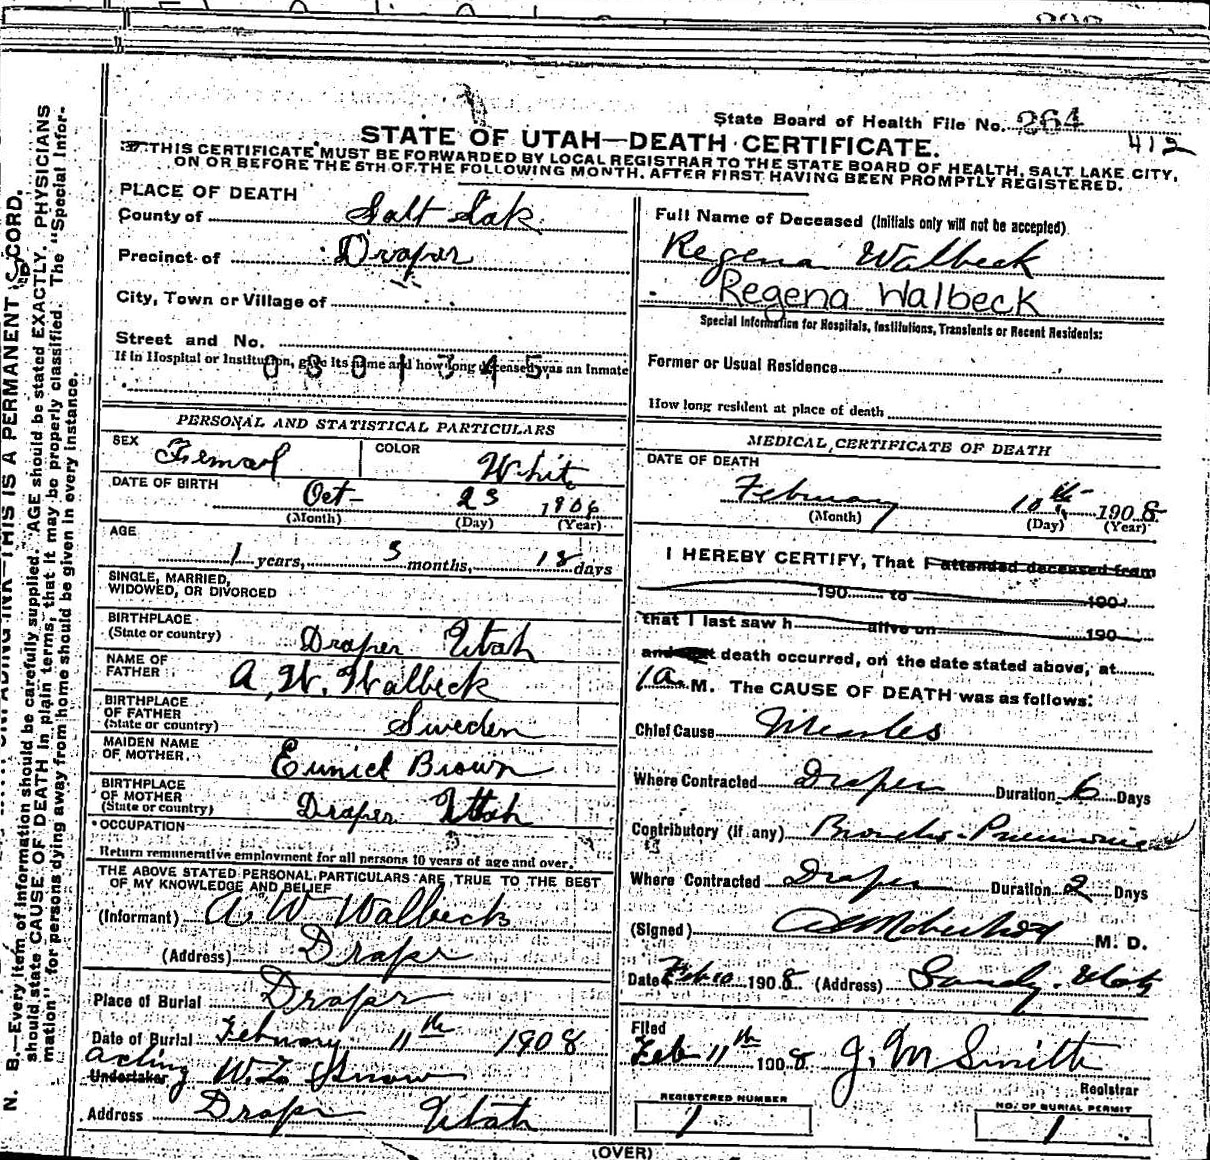 State Board of Health File No. 264
412
STATE OF UTAH—DEATH CERTIFICATE.
THIS CERTIFICATE MUST BE FORWARDED BY LOCAL REGISTRAR TO THE STATE BOARD OF HEALTH, SALT LAKE CITY,
ON OR BEFORE THE 5TH OF THE FOLLOWING MONTH, AFTER FIRST HAVING BEEN PROMPTLY REGISTERED.
N. B.—Every item of information should be carefully supplied. AGE should be stated EXACTLY. PHYSICIANS
should state CAUSE OF DEATH in plain terms, that it may be properly classified. The "Special Infor-
mation" for persons dying away from home should be given in every instance.
THIS IS A PERMANENT
PLACE OF DEATH
County of Salt Lak
Precinct of Draper
City, Town or Village of
Street and No.
If in Hospital or Institution, give its name and how long deceased was an Inmate
0801345
PERSONAL AND STATISTICAL PARTICULARS
SEX Femal COLOR Whit
DATE OF BIRTH Oct- 23 1906
(Month) (Day) (Year)
AGE
1 years, 3 months, 18 days
SINGLE, MARRIED,
WIDOWED, OR DIVORCED
BIRTHPLACE
(State or country) Draper Utah
NAME OF
FATHER A. W. Walbeck
BIRTHPLACE
OF FATHER
(State or country) Sweden
MAIDEN NAME
OF MOTHER Eunice Brown
BIRTHPLACE
OF MOTHER
(State or country) Draper Utah
OCCUPATION
Return remunerative employment for all persons 10 years of age and over.
THE ABOVE STATED PERSONAL PARTICULARS ARE TRUE TO THE BEST
OF MY KNOWLEDGE AND BELIEF
(Informant) A. W Walbeck
(Address) Draper
Place of Burial Draper
Date of Burial February 11th 1908
acting
Undertaker W. Z. Snow
Address Draper Utah
Full Name of Deceased (Initials only will not be accepted)
Regena Walbeck
Regena Walbeck
Special Information for Hospitals, Institutions, Transients or Recent Residents:
Former or Usual Residence
How long resident at place of death
MEDICAL CERTIFICATE OF DEATH
DATE OF DEATH
February 10th 1908
(Month) (Day) (Year)
I HEREBY CERTIFY, That I attended deceased from
190 to 190
that I last saw h alive on 190
and that death occurred, on the date stated above, at
1 a. M. The CAUSE OF DEATH was as follows:
Chief Cause Measles
Where Contracted Draper Duration 6 Days
Contributory (if any) Broncho-Pneumonia
Where Contracted Draper Duration 2 Days
(Signed) M. D.
Date Feb 10 1908 (Address) Sandy. Utah
Filed
Feb 11th 1908 J. M Smith
Registrar
REGISTERED NUMBER
1
NO. OF BURIAL PERMIT
1
(OVER)